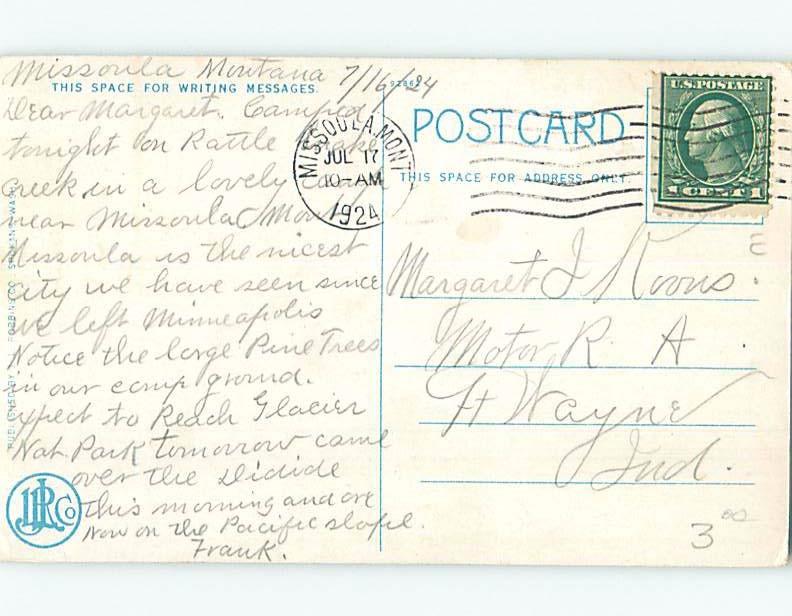 Missoula Montana 7/16/24
THIS SPACE FOR WRITING MESSAGES.
Dear Margaret. Camped
tonight on Rattle Snake
Creek in a lovely
near Missoula Mont
Missoula is the nicest
City we have seen since
we left Minneapolis
Notice the large Pine Trees
in our camp ground.
expect to Reach Glacier
Nat. Park tomorrow came
over the Didide
this morning and are
Now on the Pacific slope.
Frank.
POST CARD
THIS SPACE FOR ADDRESS ONLY.
MISSOULA, MONT
JUL 17
10-AM
1924
U.S. POSTAGE
1 CENT 1
Margaret J Koons.
Motor R. A
Ft Wayne
Ind.
3 00